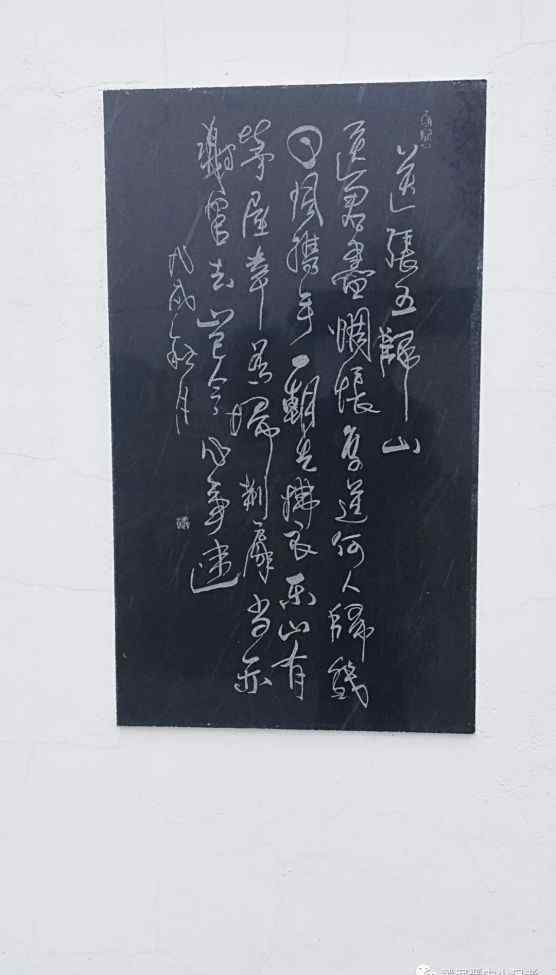 送張五歸山
送君盡惆悵復送何人歸幾
日同攜手一朝先拂衣東山有
茅屋幸為掃荆扉當亦
謝官去豈令心事違
戊戌秋月